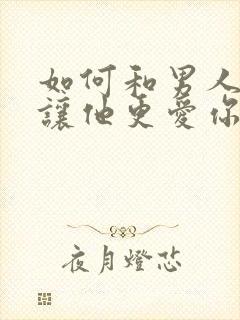 如何和男人
讓他更愛你
夜月燈芯